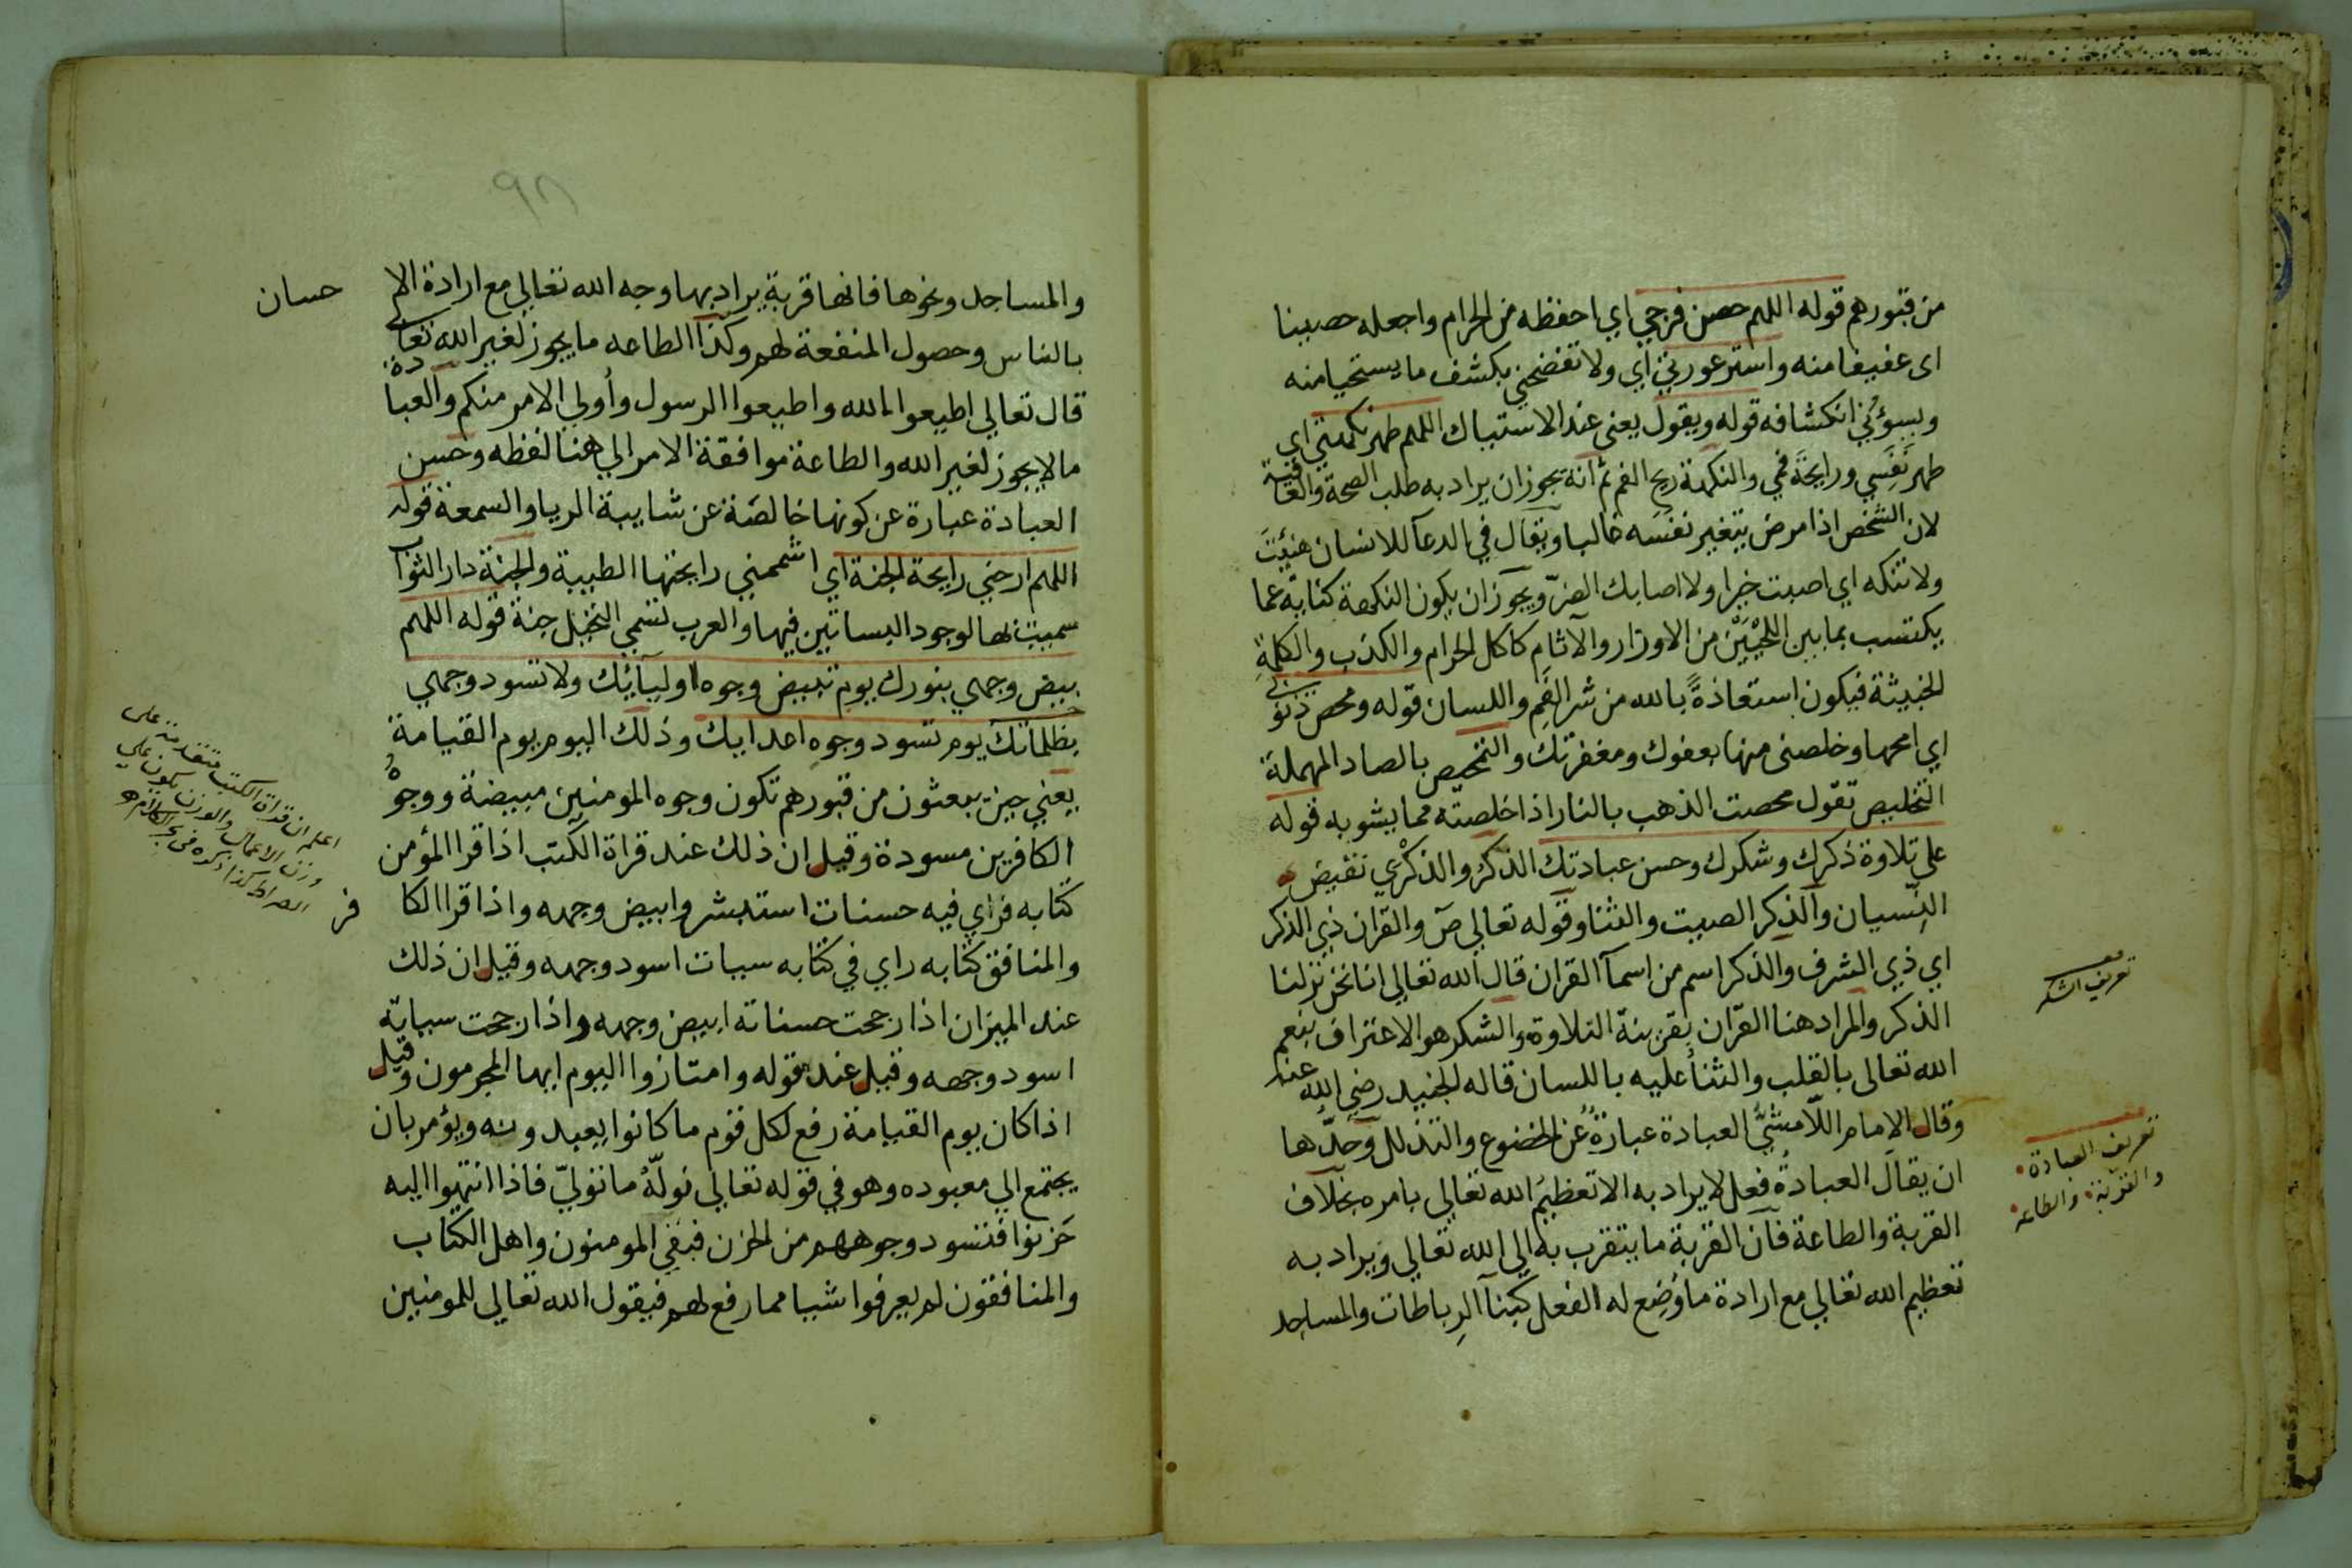 من قبورهم قوله اللهم حصن فرجي اي احفظه من الحرام واجعله حصينا
اى عفيفا منه واستر عورتي اي ولا تفضحني بكشف ما يستحيا منه
ويسوؤني انكشافه قوله ويقول يعنى عند الاستياك اللهم طهر نكهتي اي
طهر نَفَسي ورايحة فمي والنكهة ريح الفم ثم انه يجوز ان يراد به طلب الصحة والعافية
لان الشخص اذا مرض يتغير نفسه غالبا ويقال في الدعآ للانسان هنيت
ولا تنكه اي اصبت خيرا ولا اصابك الضرّ ويجوز ان يكون النكهة كناية عما
يكتسب بما بين اللحيَيْن من الاوزار والآثام كاكل الحرام والكذب والكلمة
الخبيثة فيكون استعاذةً بالله من شر الفم واللسان قوله ومحص ذنوبي
اي امحها وخلصنى منها بعفوك ومغفرتك والتمحيص بالصاد المهملة
التخليص تقول محصت الذهب بالنار اذا خلصته مما يشوبه قوله
على تلاوة ذكرك وشكرك وحسن عبادتك الذكر والذكرْي نقيض
النِّسيان والذكر الصيت والثنا وقوله تعالى صَ والقران ذي الذكر
اي ذي الشرف والذكر اسم من اسمآ القران قال الله تعالى انا نحن نزلنا
الذكر والمراد هنا القرٓان بقرينة التلاوة والشكر هو الاعتراف بنعم
الله تعالى بالقلب والثنأ عليه باللسان قاله الجنيد رضي الله عنه
وقال الامام اللّامشيُّ العبادة عبارةٌ عن الخضوع والتذلل وحدّها
ان يقال العبادةُ فعل لا يراد به الا تعظيم الله تعالى بامره بخلاف
القربة والطاعة فان القربة ما يتقرب به الي الله تعالي ويراد به
تعظيم الله تعالي مع ارادة ما وُضِع له الفعل كبنآ الرِباطات والمساجد
تعريف الشكر
تعريف العبادة
والقربة والطاعة
٩٨
والمساجد ونحوها فانها قربة يراد بها وجه الله تعالي مع ارادة الا حسان
بالناس وحصول المنفعة لهم وكذا الطاعه ما يجوز لغير الله تعالى
قال تعالي اطيعوا الله واطيعوا الرسول وأولي الامر منكم والعبادة
ما لا يجوز لغير الله والطاعة موافقة الامر الي هنا لفظه وحسن
العبادة عبارة عن كونها خالصَة عن شايبة الريا والسمعة قوله
اللهم ارحني رايحة الجنة اي اشممني رايحتها الطيبة والجنة دار الثواب
سميت بها لوجود البساتين فيها والعرب تسمي النخيل جنة قوله اللهم
بيض وجهي بنورك يوم تبيض وجوه اوليآئك ولا تسود وجهي
بظلماتك يوم تسود وجوه اعدايك وذلك اليوم يوم القيامة
يعني حين يبعثون من قبورهم تكون وجوه المومنين مبيضة ووجوهُ
الكافرين مسودة وقيل ان ذلك عند قراة الكتب اذا قرا المؤمن
كتابه فراي فيه حسنات استبشر وابيض وجهه واذا قرا الكا فر
والمنافق كتابه راي في كتابه سيات اسود وجهه وقيل ان ذلك
عند الميزان اذا رجحت حسناته ابيض وجهه واذا رجحت سياته
اسود وجهه وقيل عند قوله وامتازوا اليوم ايها المجرمون وقيل
اذا كان يوم القيامة رفع لكل قوم ما كانوا يعبدونه ويؤمر بان
يجتمع الي معبوده وهو في قوله تعالي نولّهْ ما تولّي فاذا انتهوا اليه
حَزنوا فتسود وجوههم من الحزن فبقي المومنون واهل الكتاب
والمنافقون لم يعرفوا شيا مما رفع لهم فيقول الله تعالي للمومنين
اعلم ان قراة الكتب متقدمة على
وزن الاعمال والوزن يكون على
الصراط كذا ذكره في بحر الكلام